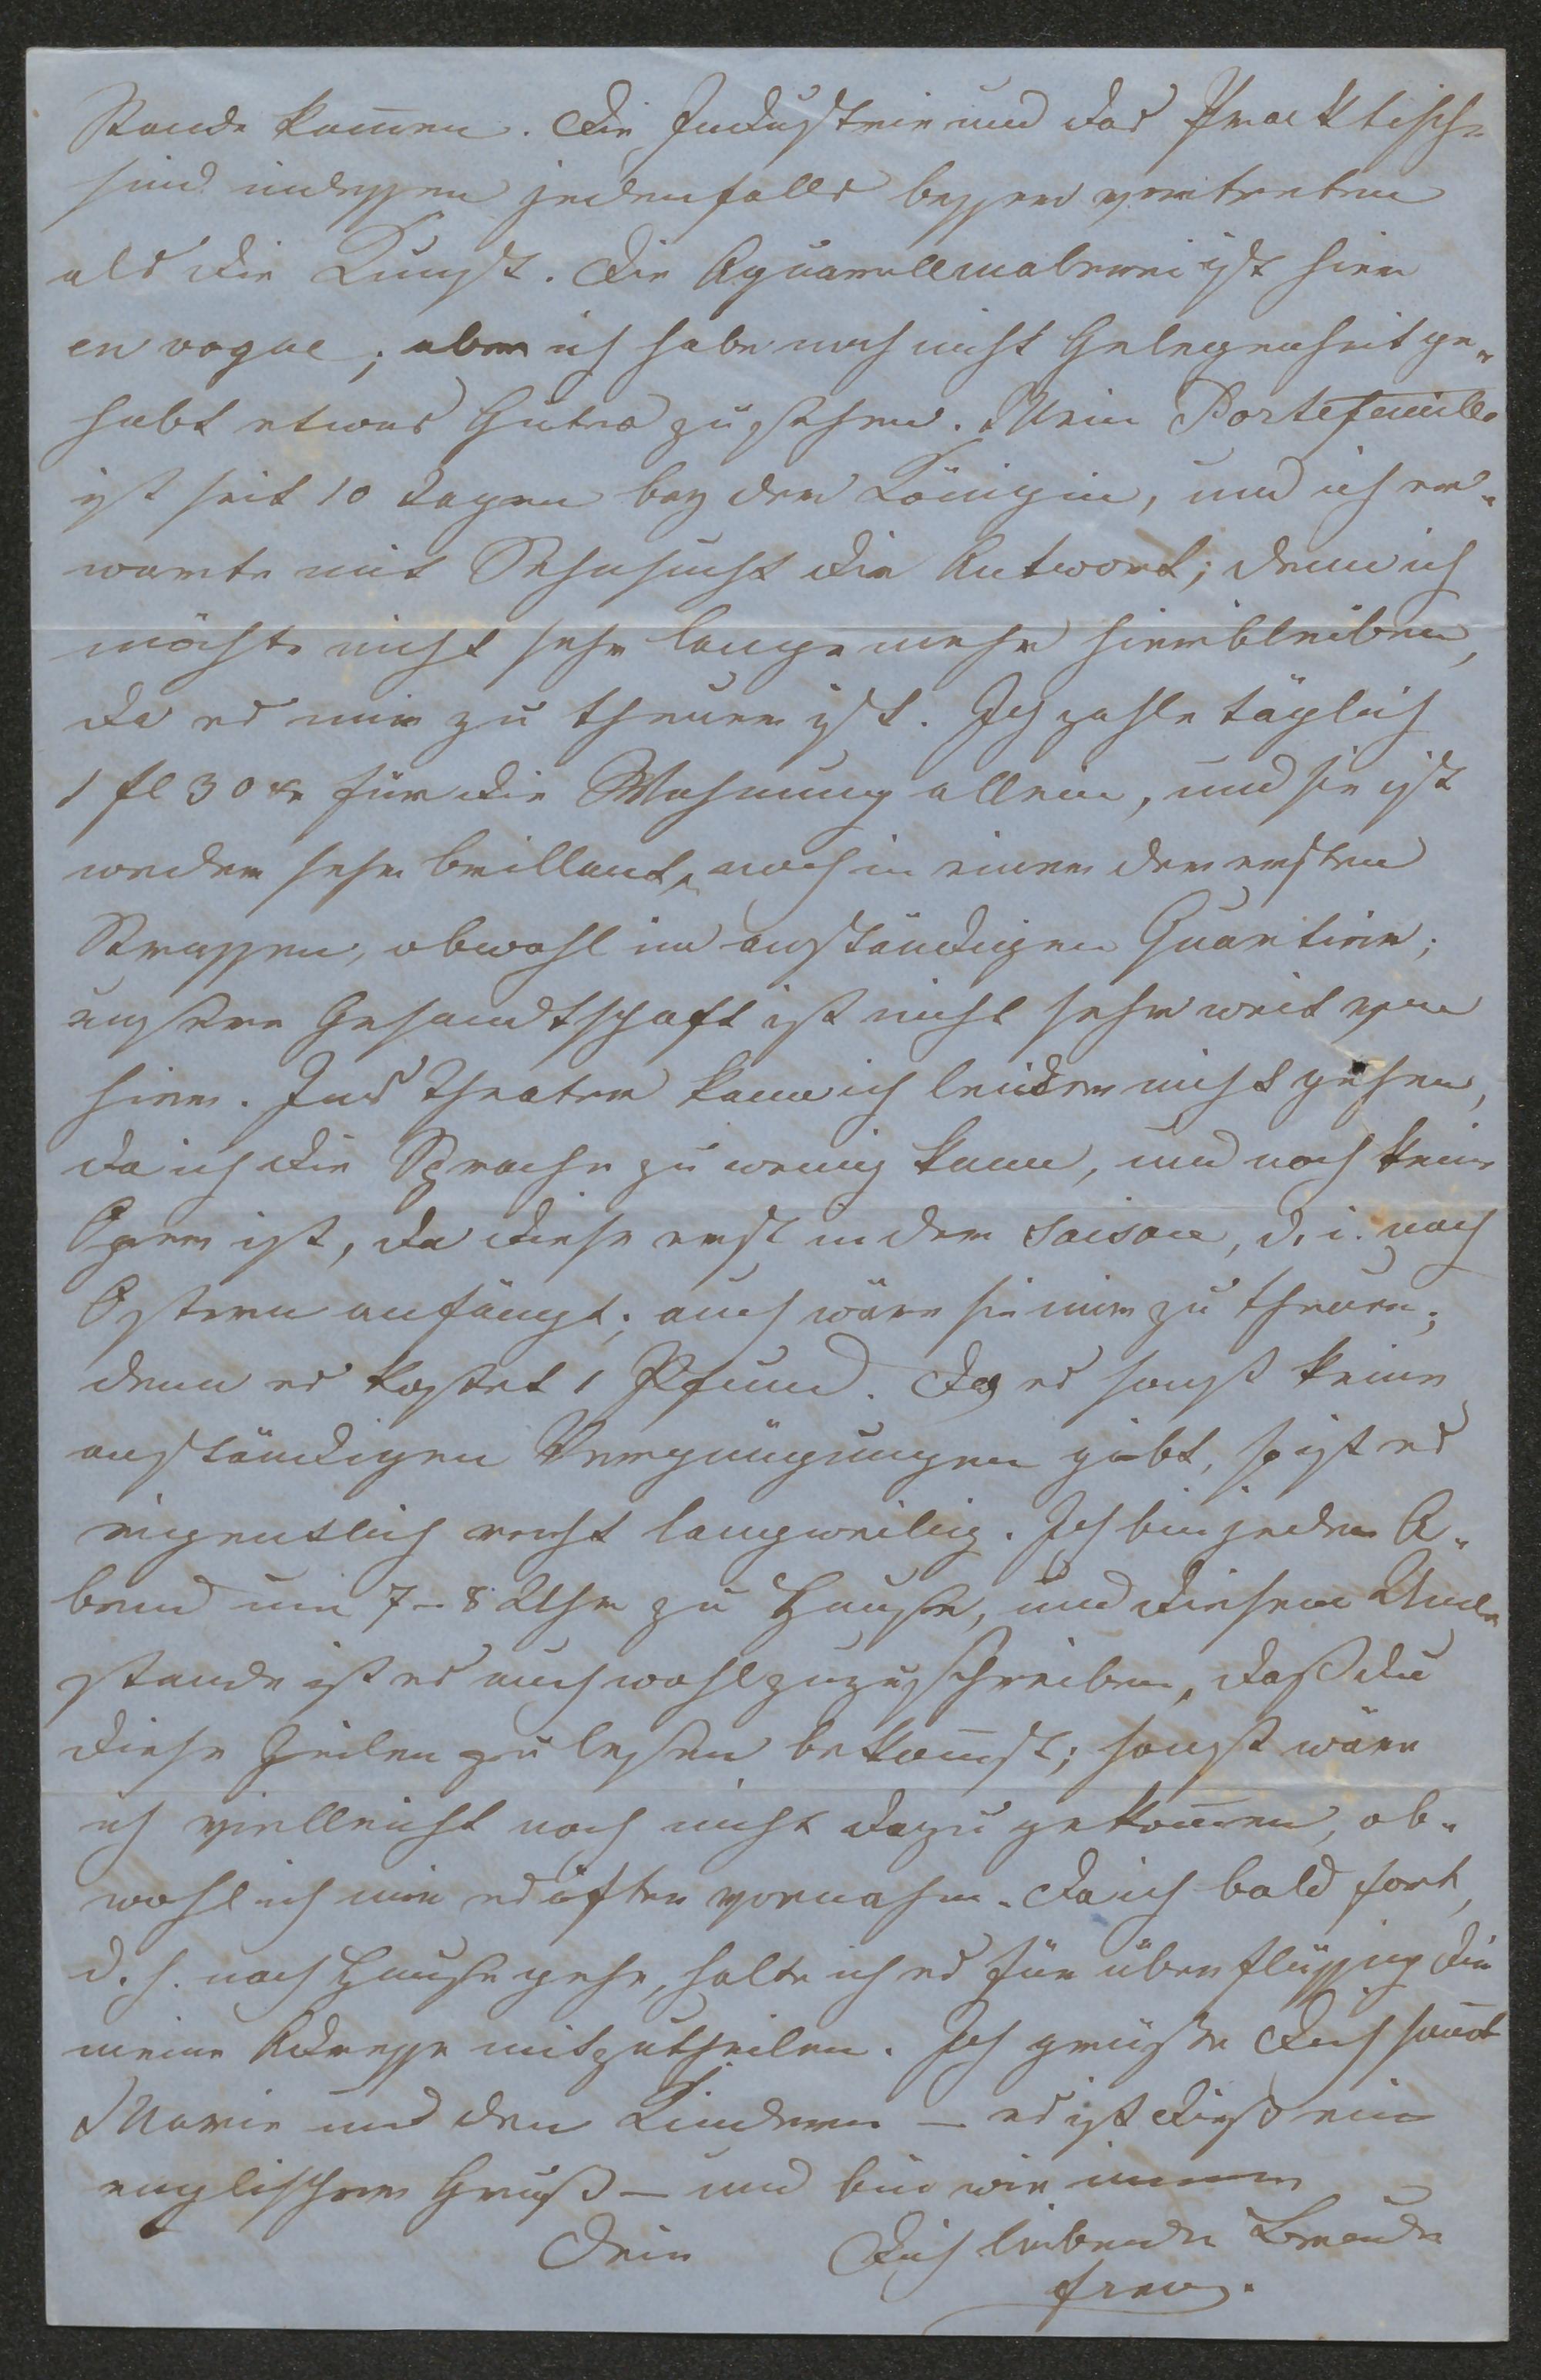 Stande kom̄en. Die Industrie und das Praktische
sind indessen jedenfalls besser vertreten
als die Kunst. Die Aquarellmalerei ist hier
en vogue; aber ich habe noch nicht Gelegenheit ge-
habt etwas Gutes zu sehen. Mein Portefeuille
ist seit 10 Tagen bey der Königin, und ich er-
warte mit Sehnsucht die Antwort; denn ich
möchte nicht sehr lange mehr hierbleiben,
da es mir zu theuer ist. Ich zahle täglich
1 fl 30 xr für die Wohnung allein, und sie ist
weder sehr brillant, noch in einer der ersten
Strassen, obwohl im anständigen Quartier;
unsere Gesandtschaft ist nicht sehr weit von
hier. Ins Theater kann ich leider nicht gehen,
da ich die Sprache zu wenig kann, und noch keine
Oper ist, da diese erst in der Saison, d. i. nach
Ostern anfängt; auch wäre sie mir zu theuer;
denn es kostet 1 Pfund. Da es sonst keine
anständigen Vergnügungen gibt, so ist es
eigentlich recht langweilig. Ich bin jeden A-
bend um 7-8 Uhr zu Hause, und diesem Um-
stande ist es auch wohl zuzuschreiben, daß du
diese Zeilen zu lesen bekom̄st; sonst wäre
ich vielleicht noch nicht dazu gekom̄en, ob-
wohl ich mir es öfter vornahm. Da ich bald fort,
d. h. nach Hause gehe, halte ich es für überflüssig dir
meine Adresse mitzutheilen. Ich grüße Dich sam̄t
Marie und den Kindern — es ist dieß ein
englischer Gruß — und bin wie immer
Dein Dich liebender Bruder
Franz.